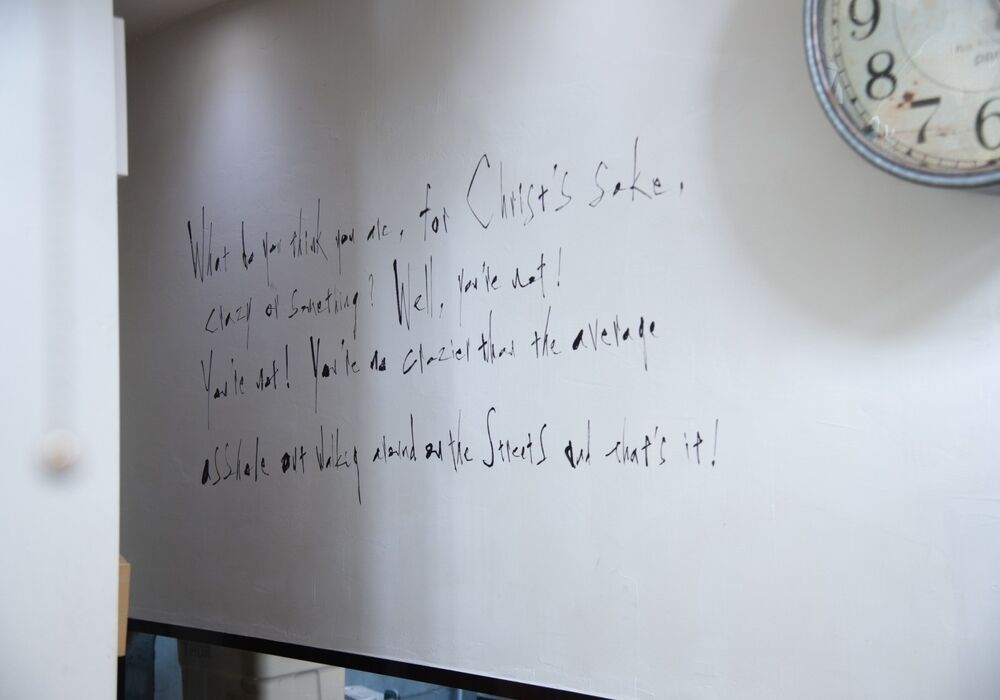 What do you think you are, for Christ's sake,
crazy or something? Well, you're not!
You're not! You're no crazier than the average
asshole out walking around on the streets and that's it!
9
8
7
6